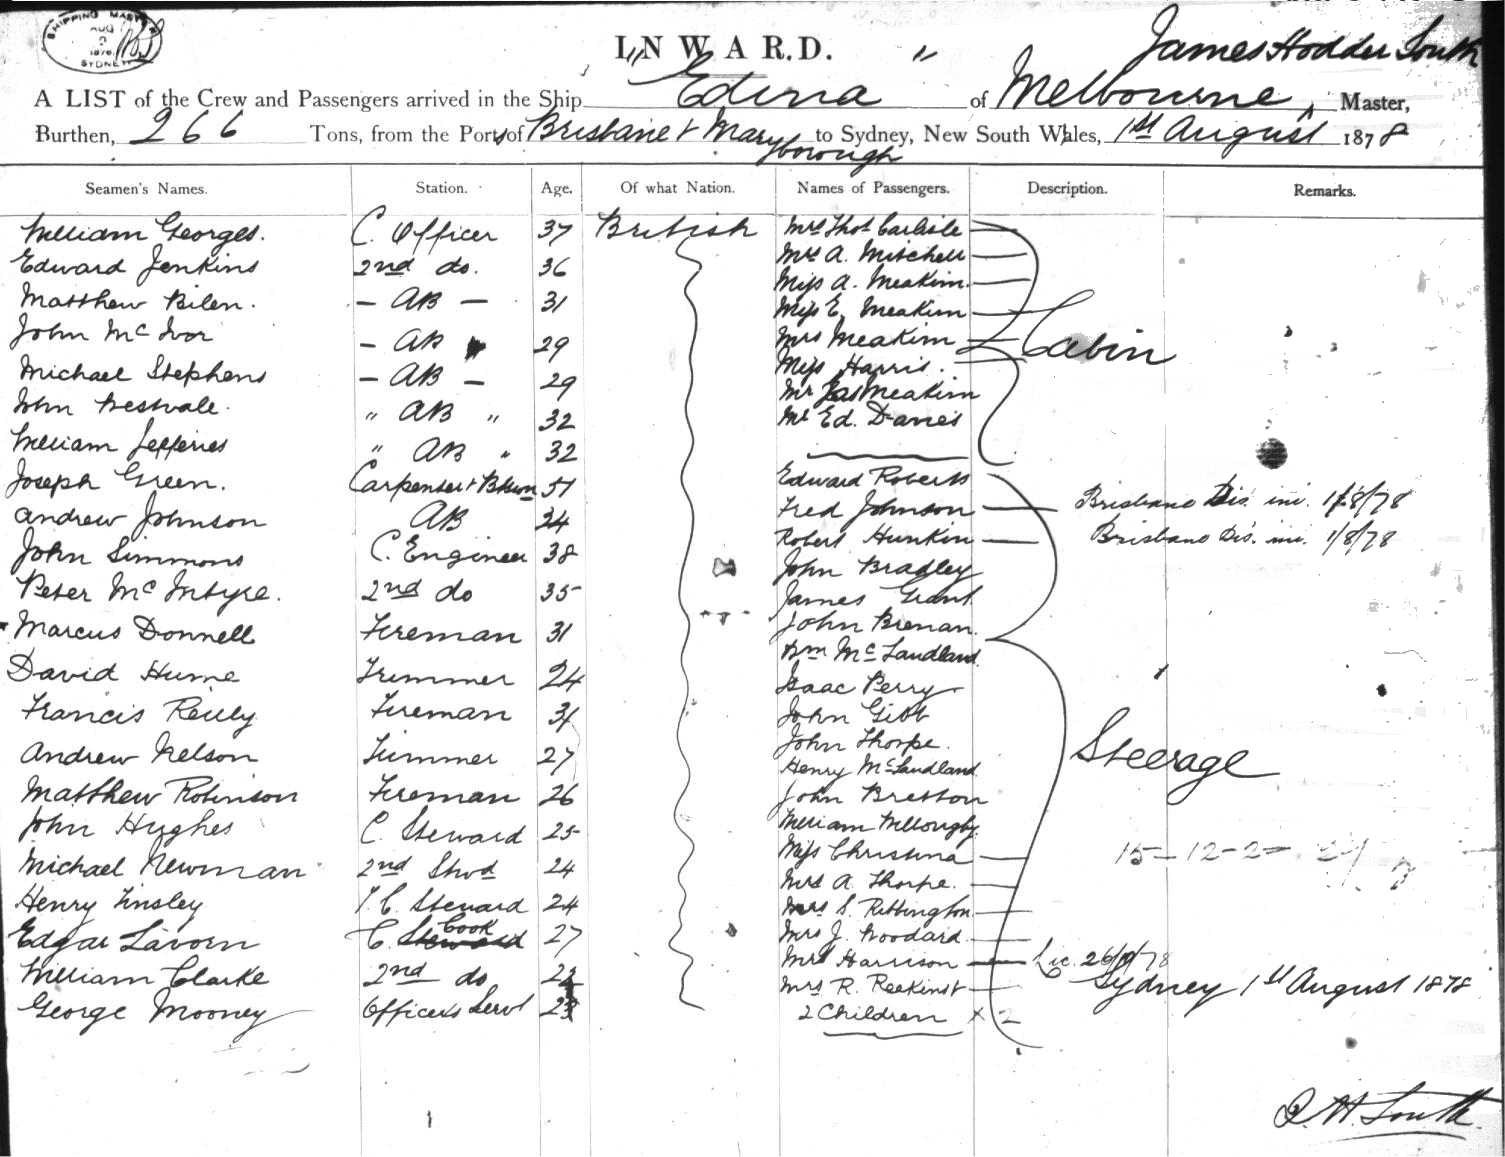 SHIPPING MASTER
AUG
1878
SYDNEY
INWARD.
James Hodder South
A LIST of the Crew and Passengers arrived in the Ship "Edina" of Melbourne, Master,
Burthen, 266 Tons, from the Ports of Brisbane & Maryborough to Sydney, New South Wales, 1st August 1878
Seamen's Names. Station. Age. Of what Nation. Names of Passengers. Description. Remarks.
William Georges. C. Officer 37 British Mrs Thos Carlisle
Edward Jenkins 2nd do. 36 Mrs A. Mitchell
Matthew Bilen. - AB - 31 Miss A. Meakim
John McIvor - AB 29 Miss E. Meakim
Michael Stephens - AB - 29 Mrs Meakim Cabin
John " AB " 32 Miss Harris.
William Jefferies " AB " 32 Mr Jas Meakim
Mr Ed. Davies
Joseph Green. Carpenter & 51 Edward Roberts
Andrew Johnson AB 24 Fred Johnson Brisbane Dis. 1/8/78
John Simmons C. Engineer 38 Robert Hunkin Brisbane Dis. 1/8/78
Peter McIntyre. 2nd do 35 John Bradley
James Grant
Marcus Donnell Fireman 31 John Brenan.
David Hume Trimmer 24 McLandland
Francis Reilly Fireman 31 Isaac Perry
John Gibb
Andrew Nelson Trimmer 27 John Thorpe. Steerage
Henry McLandland
Matthew Robinson Fireman 26 John Bretton
John Hughes C. Steward 25 William Willougby
Miss Christina 15-12-2
Michael Newman 2nd Stwd 24 Mrs A. Thorpe.
Henry Tinsley C. Steward 24 Mrs S. Rebbington
Edgar Lavorn C. Steward Cook 27 Mrs J. Woodard
William Clarke 2nd do Mrs Harrison
George Mooney Officers Servt Mrs R. Sydney 1st August 1878
2 Children x 2
J. H. South